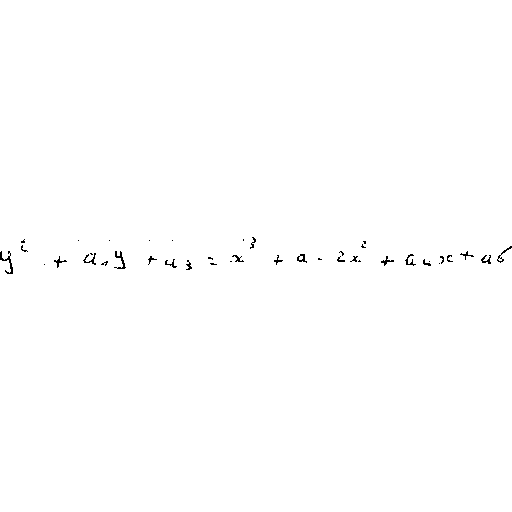 y² + a₁y + a₃ = x³ + a - 2x² + a₄x + a6